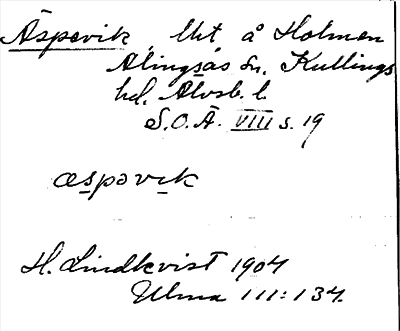 Äspevik, Lht å Holmen
Alingsås sn. Kullings
hd. Älvsb. l.
S.O.Ä. VIII s. 19
æspəvɩk
H. Lindkvist 1904
Ulma 111:134.